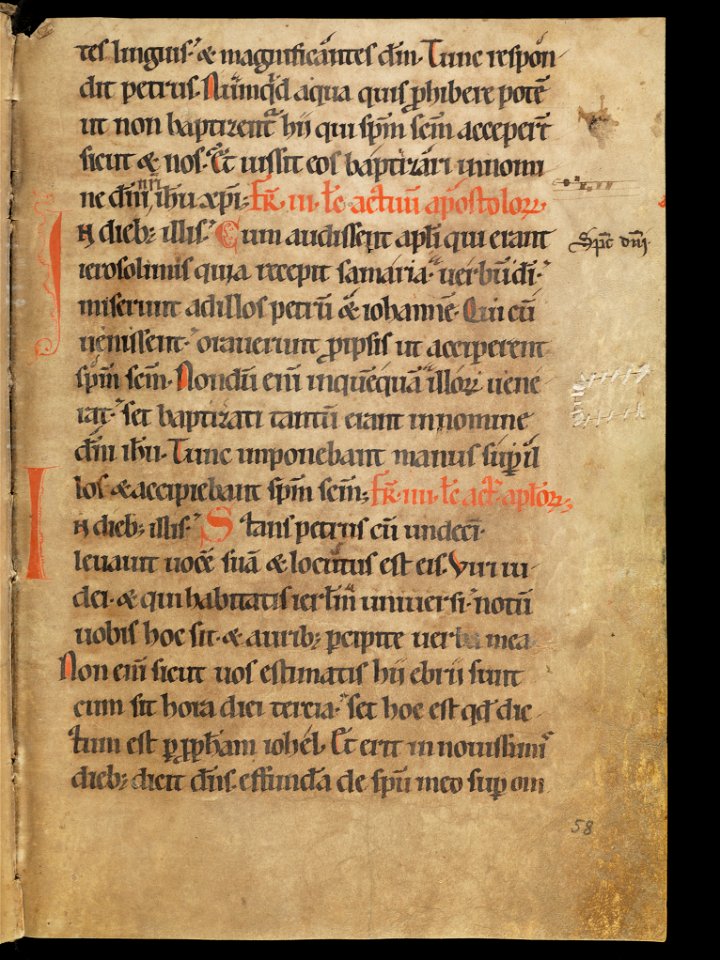 tes linguis. & magnificantes dm̄. Tunc respon
dit petrus. Numqͥd aqua quis ꝓhibere potē
ut non baptizent᷑ hii qui spm̄ scm̄ acceper̄t
sicut & nos. Et iussit eos baptizari in nomi
ne dm̄i nr̄i ihū xpī; Fr̄. iii. lc̄ actuū apostoloꝝ.
In dieb; illis. Cum audissent apłi qui erant
ierosolimis quia recepit samaria uerbū dī.
miserunt ad illos petrū & iohannē. Qui cū
uenissent. orauerunt ꝓ ipsis ut acciperent
spm̄ scm̄. Nondū enī in quēquā illoꝝ uene
rat. set baptizati tantū erant in nomine
dm̄i ihū. Tunc imponebant manus suꝑ il
los & accipiebant spm̄ scm̄; Fr̄. iiii. lc̄ act᷑ apłoꝝ;
In dieb; illis. Stans petrus cū undeci.
leuauit uocē suā & locutus est eis. Viri iu
dei. & qui habitatis ierłm̄ uniuersi. notū
uobis hoc sit. & aurib; ꝑcipite uerba mea
Non enī sicut uos estimatis hii ebrii sunt
cum sit hora diei tercia. set hoc est qđ dic
tum est ꝑ ꝓpħam iohel. Et erit in nouissimis
dieb; dicit dn̄s. effundā de spū meo suꝑ om
Spc̄ dm̄i
58